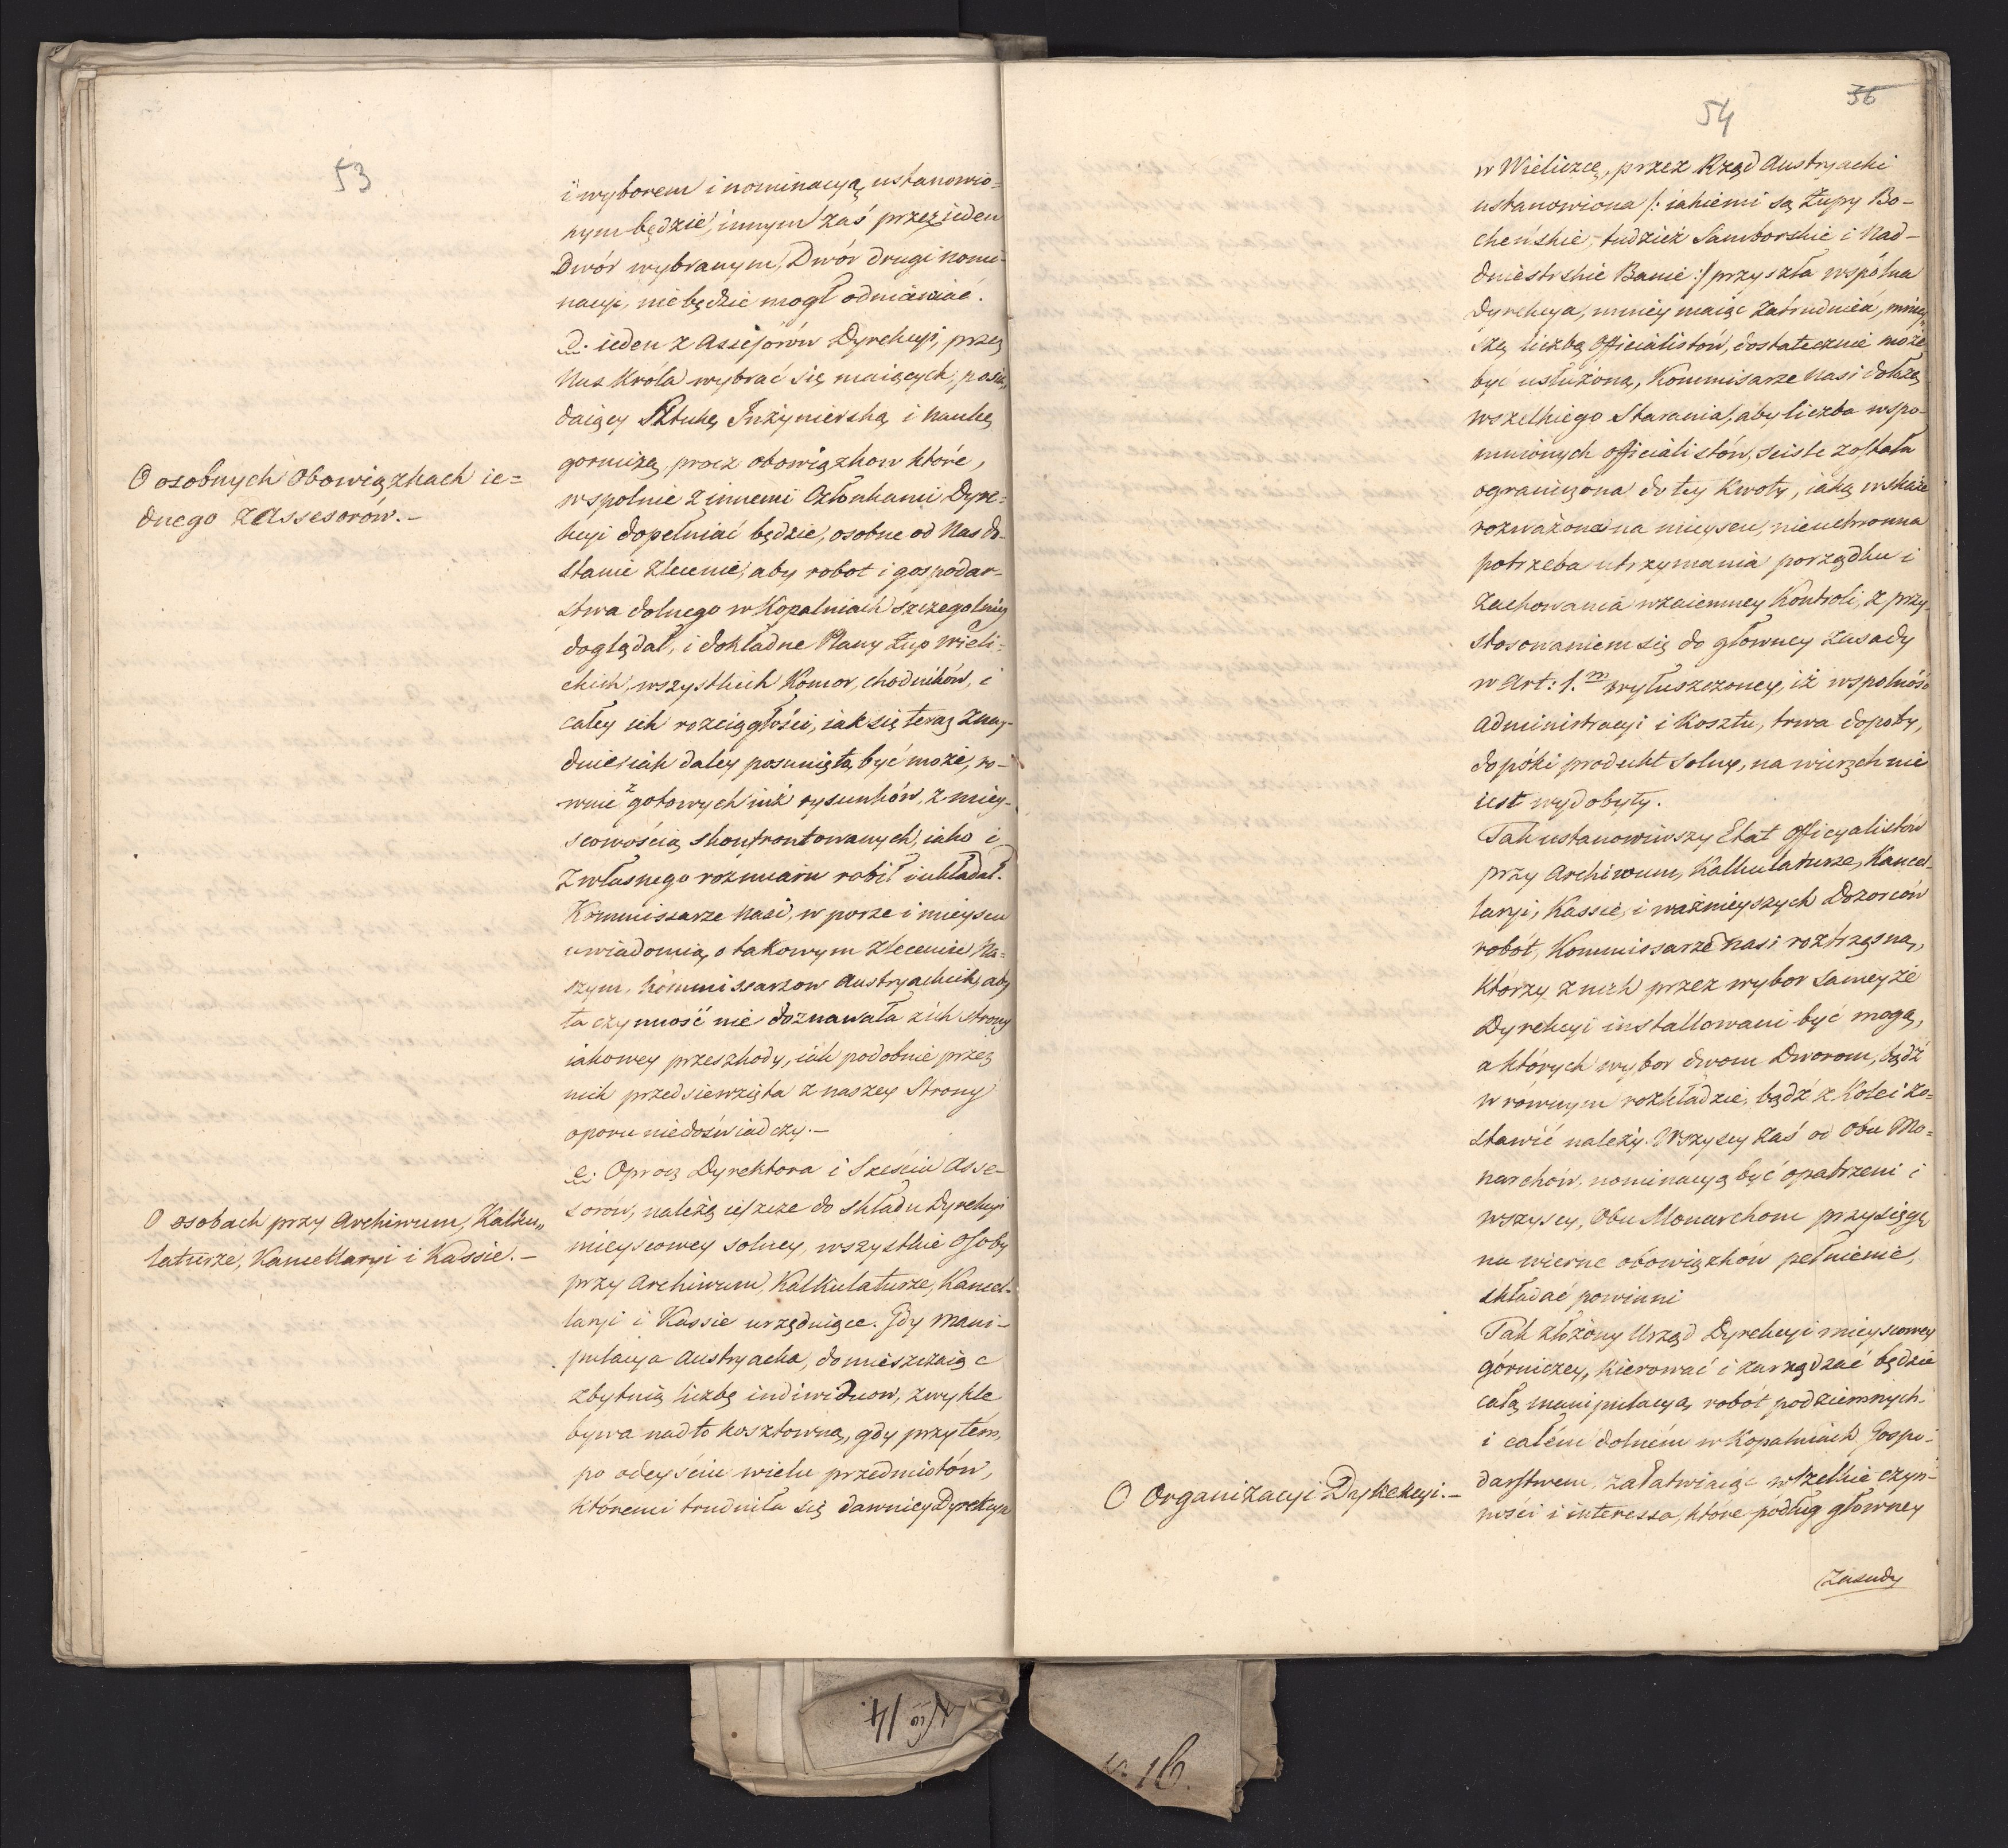 53
i wyborem i nominacyą ustanowio=
nym będzie, innym zaś przez ieden
Dwór wybranym, Dwór drugi nomi-
nacyi, nie będzie mogł odmawiać.
d. ieden z Assessorów Dyrekcyi, przez
Nas Krola wybrać się maiących, posia-
daiący Sztukę Inżynierską i naukę
gorniczą, procz obowiązkow które,
wspolnie z innemi Członkami Dyre=
kcyi dopełniać będzie, osobne od Nas do-
stanie zlecenie, aby robot i gospodar-
stwa dolnego w Kopalniach szczegolniey
doglądał, i dokładne Plany Żup Wieli=
ckich, wszystkich Komor, chodników, i
całey ich rozciągłości, iak się teraz znay-
duie i iak daley posunięta być może, ro-
wnie z gotowych iuż rysunków, z miey-
scowością skonfrontowanych, iako i
z własnego rozmiaru robił i układał.
Kommissarze nasi, w porze i mieyscu
uwiadomią, o takowym zleceniu Na=
szym, kommissarzow Austryackich, aby
ta czynność nie doznawała z ich strony
iakowey przeszkody, iak podobnie przez
nich przedsiewzięta z naszey Strony
oporu niedoświadczy.-
O osobnych Obowiązkach ie=
dnego z Assesorów.-
e. Oprocz Dyrektora i Sześciu Asse-
sorów, należą ieszcze do składu Dyrekcyi
mieyscowey solney, wszystkie Osoby
przy Archiwum, Kalkulaturze, Kancel-
laryi i Kassie urzęduiące. Gdy mani-
pulacya Austryacka, domieszczaiąc
zbytnią liczbę indiwiduow, zwykle
bywa nadto kosztowną, gdy przytém,
po odeyściu wielu przedmiotów,
któremi trudniła się dawniey Dyrekcya
O osobach przy Archiwum, Kalku„
laturze, Kancellaryi i Kassie.-
54
36
w Wieliczce, przez Rząd Austryacki
ustanowiona /: iakiemi są Żupy Bo-
cheńskie, tudzież Samborskie i Nad-
dniestrskie Banie :/ przyszła wspólna
Dyrekcya, mniey maiąc zatrudnień, mniey„
szą liczbą Officialistów, dostatecznie może
być usłużona, Kommisarze Nasi dołożą
wszelkiego Starania, aby liczba wspo-
mnionych officialistów, sciśle została
ograniczona do tey Kwoty, iaką wskaże
rozważona na mieyscu, nieuchronna
potrzeba utrzymania porządku i
zachowania wzaiemney Kontroli, z przy-
stosowaniem się do głowney zasady
w Art: 1.m wyłuszczoney, iż wspolność
administracyi i Kosztu, trwa dopoty,
dopóki produkt solny, na wierzch nie
iest wydobyty.
Tak ustanowiwszy Etat Officyalistów
przy Archiwum, Kalkulaturze, Kancel-
laryi, Kassie, i ważnieyszych Dozorców
robót, Kommissarze Nasi roztrząsną,
którzy z nich przez wybor sameyże
Dyrekcyi installowani być mogą,
a których wybor dwom Dworom, bądź
w rownym rozkładzie, bądź z Kolei zo=
stawić należy. Wszyscy zaś od Obu Mo=
narchów, nominacyą być opatrzeni i
wszyscy, Obu Monarchom przysięgę
na wierne obowiązków pełnienie,
składać powinni
Tak złożony Urząd Dyrekcyi mieyscowey
górniczey, kierować i zarządzać będzie
całą manipulacyą robót podziemnych
i całém dolném w Kopalniach Gospo-
darstwem, załatwiaiąc wszelkie czyn-
ności i interessa, które podług głowney
O Organizacyi Dyrekcyi.-
zasady
16.